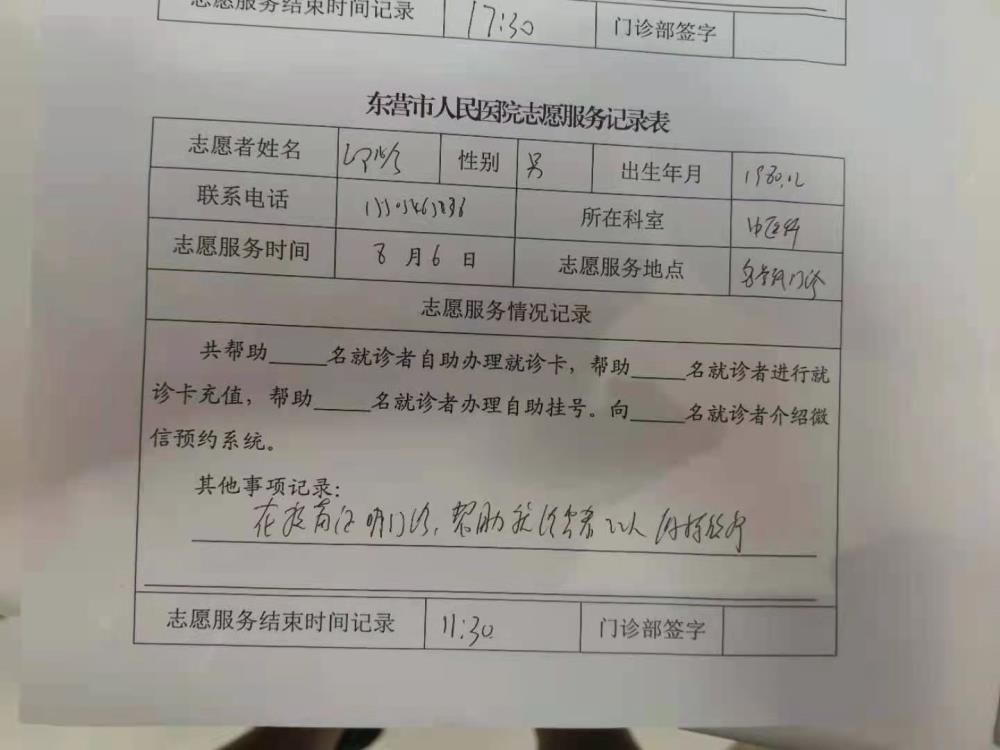 志愿服务结束时间记录 17:30 门诊部签字
东营市人民医院志愿服务记录表
志愿者姓名 性别 男 出生年月 1980.12
联系电话 所在科室 中医科
志愿服务时间 8月6日 志愿服务地点 门诊
志愿服务情况记录
共帮助_____名就诊者自助办理就诊卡，帮助_____名就诊者进行就
诊卡充值，帮助_____名就诊者办理自助挂号。向_____名就诊者介绍微
信预约系统。
其他事项记录：
在 门诊，帮助就诊患者 人
志愿服务结束时间记录 11:30 门诊部签字